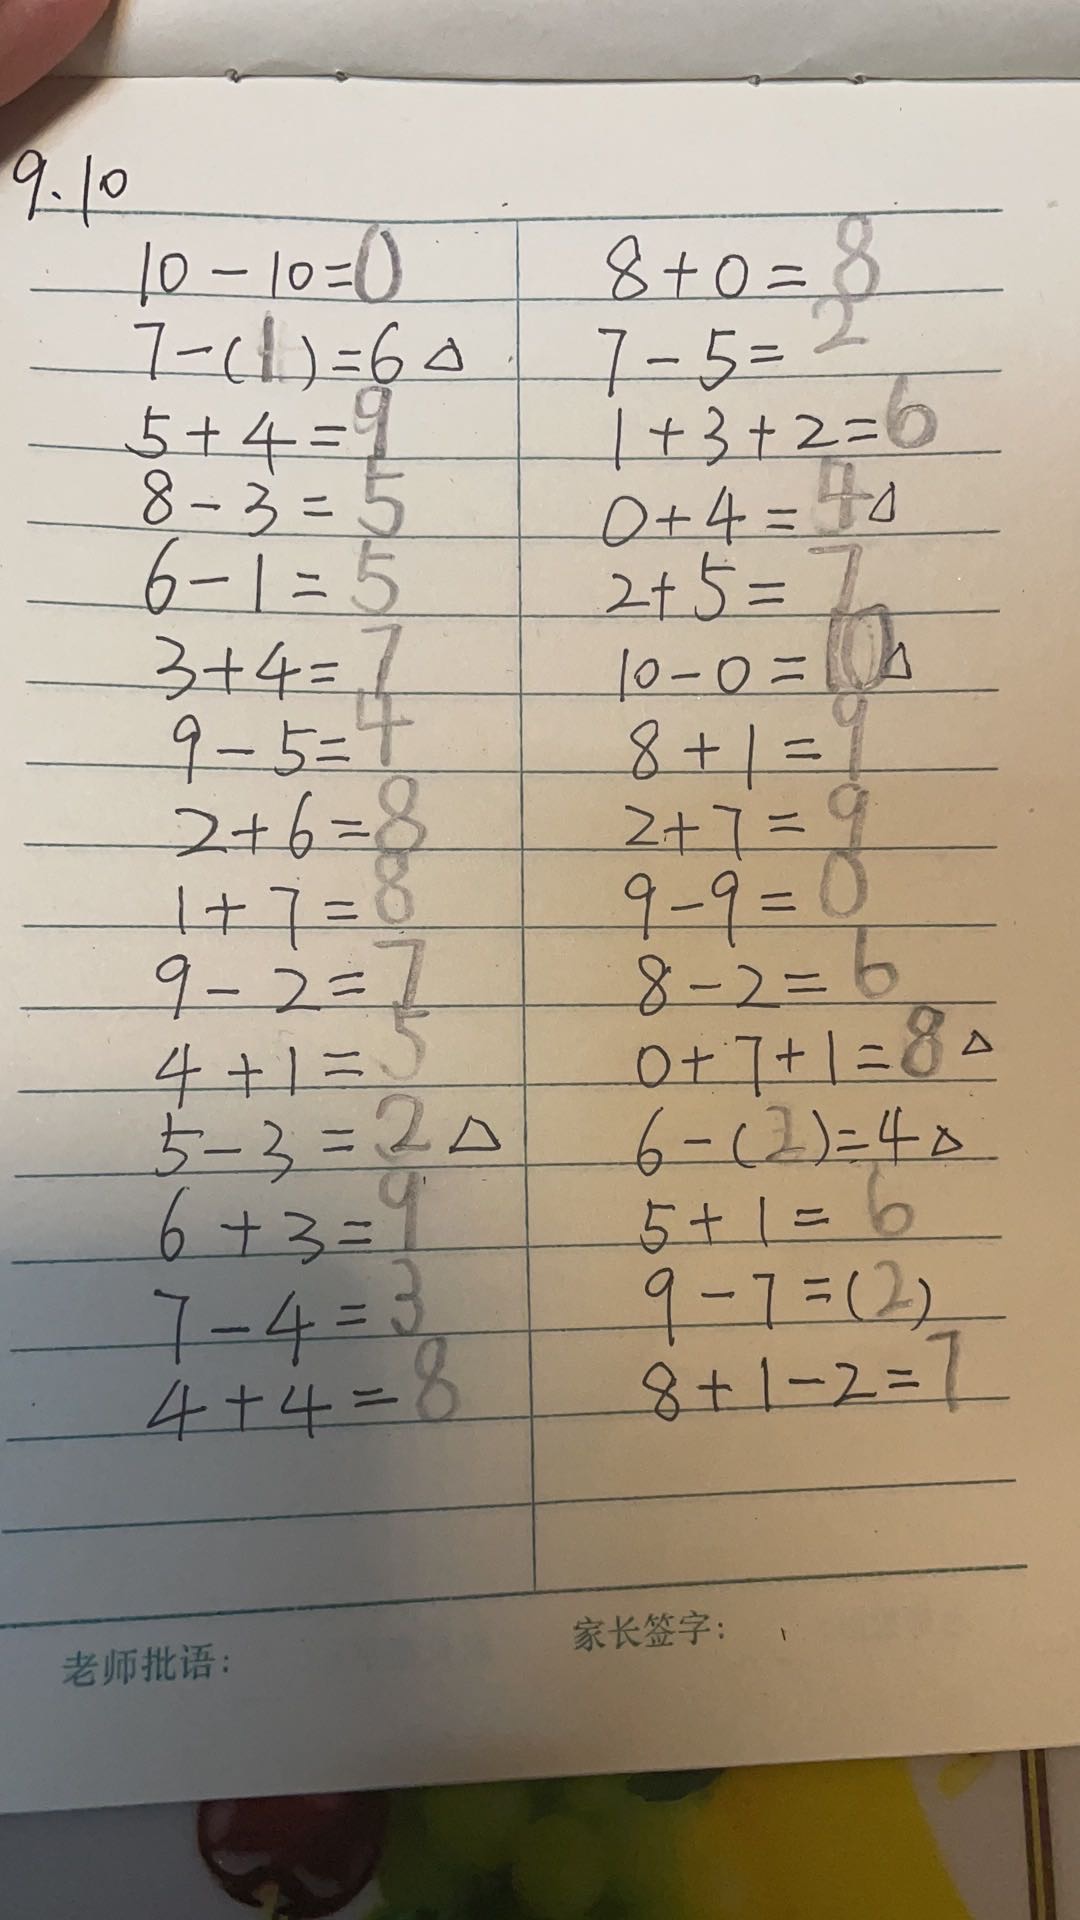 9.10
10-10=0
7-(1)=6 △
5+4=9
8-3=5
6-1=5
3+4=7
9-5=4
2+6=8
1+7=8
9-2=7
4+1=5
5-3=2 △
6+3=9
7-4=3
4+4=8
8+0=8
7-5=2
1+3+2=6
0+4=4 △
2+5=7
10-0=10 △
8+1=9
2+7=9
9-9=0
8-2=6
0+7+1=8 △
6-(2)=4 △
5+1=6
9-7=(2)
8+1-2=7
老师批语:
家长签字: